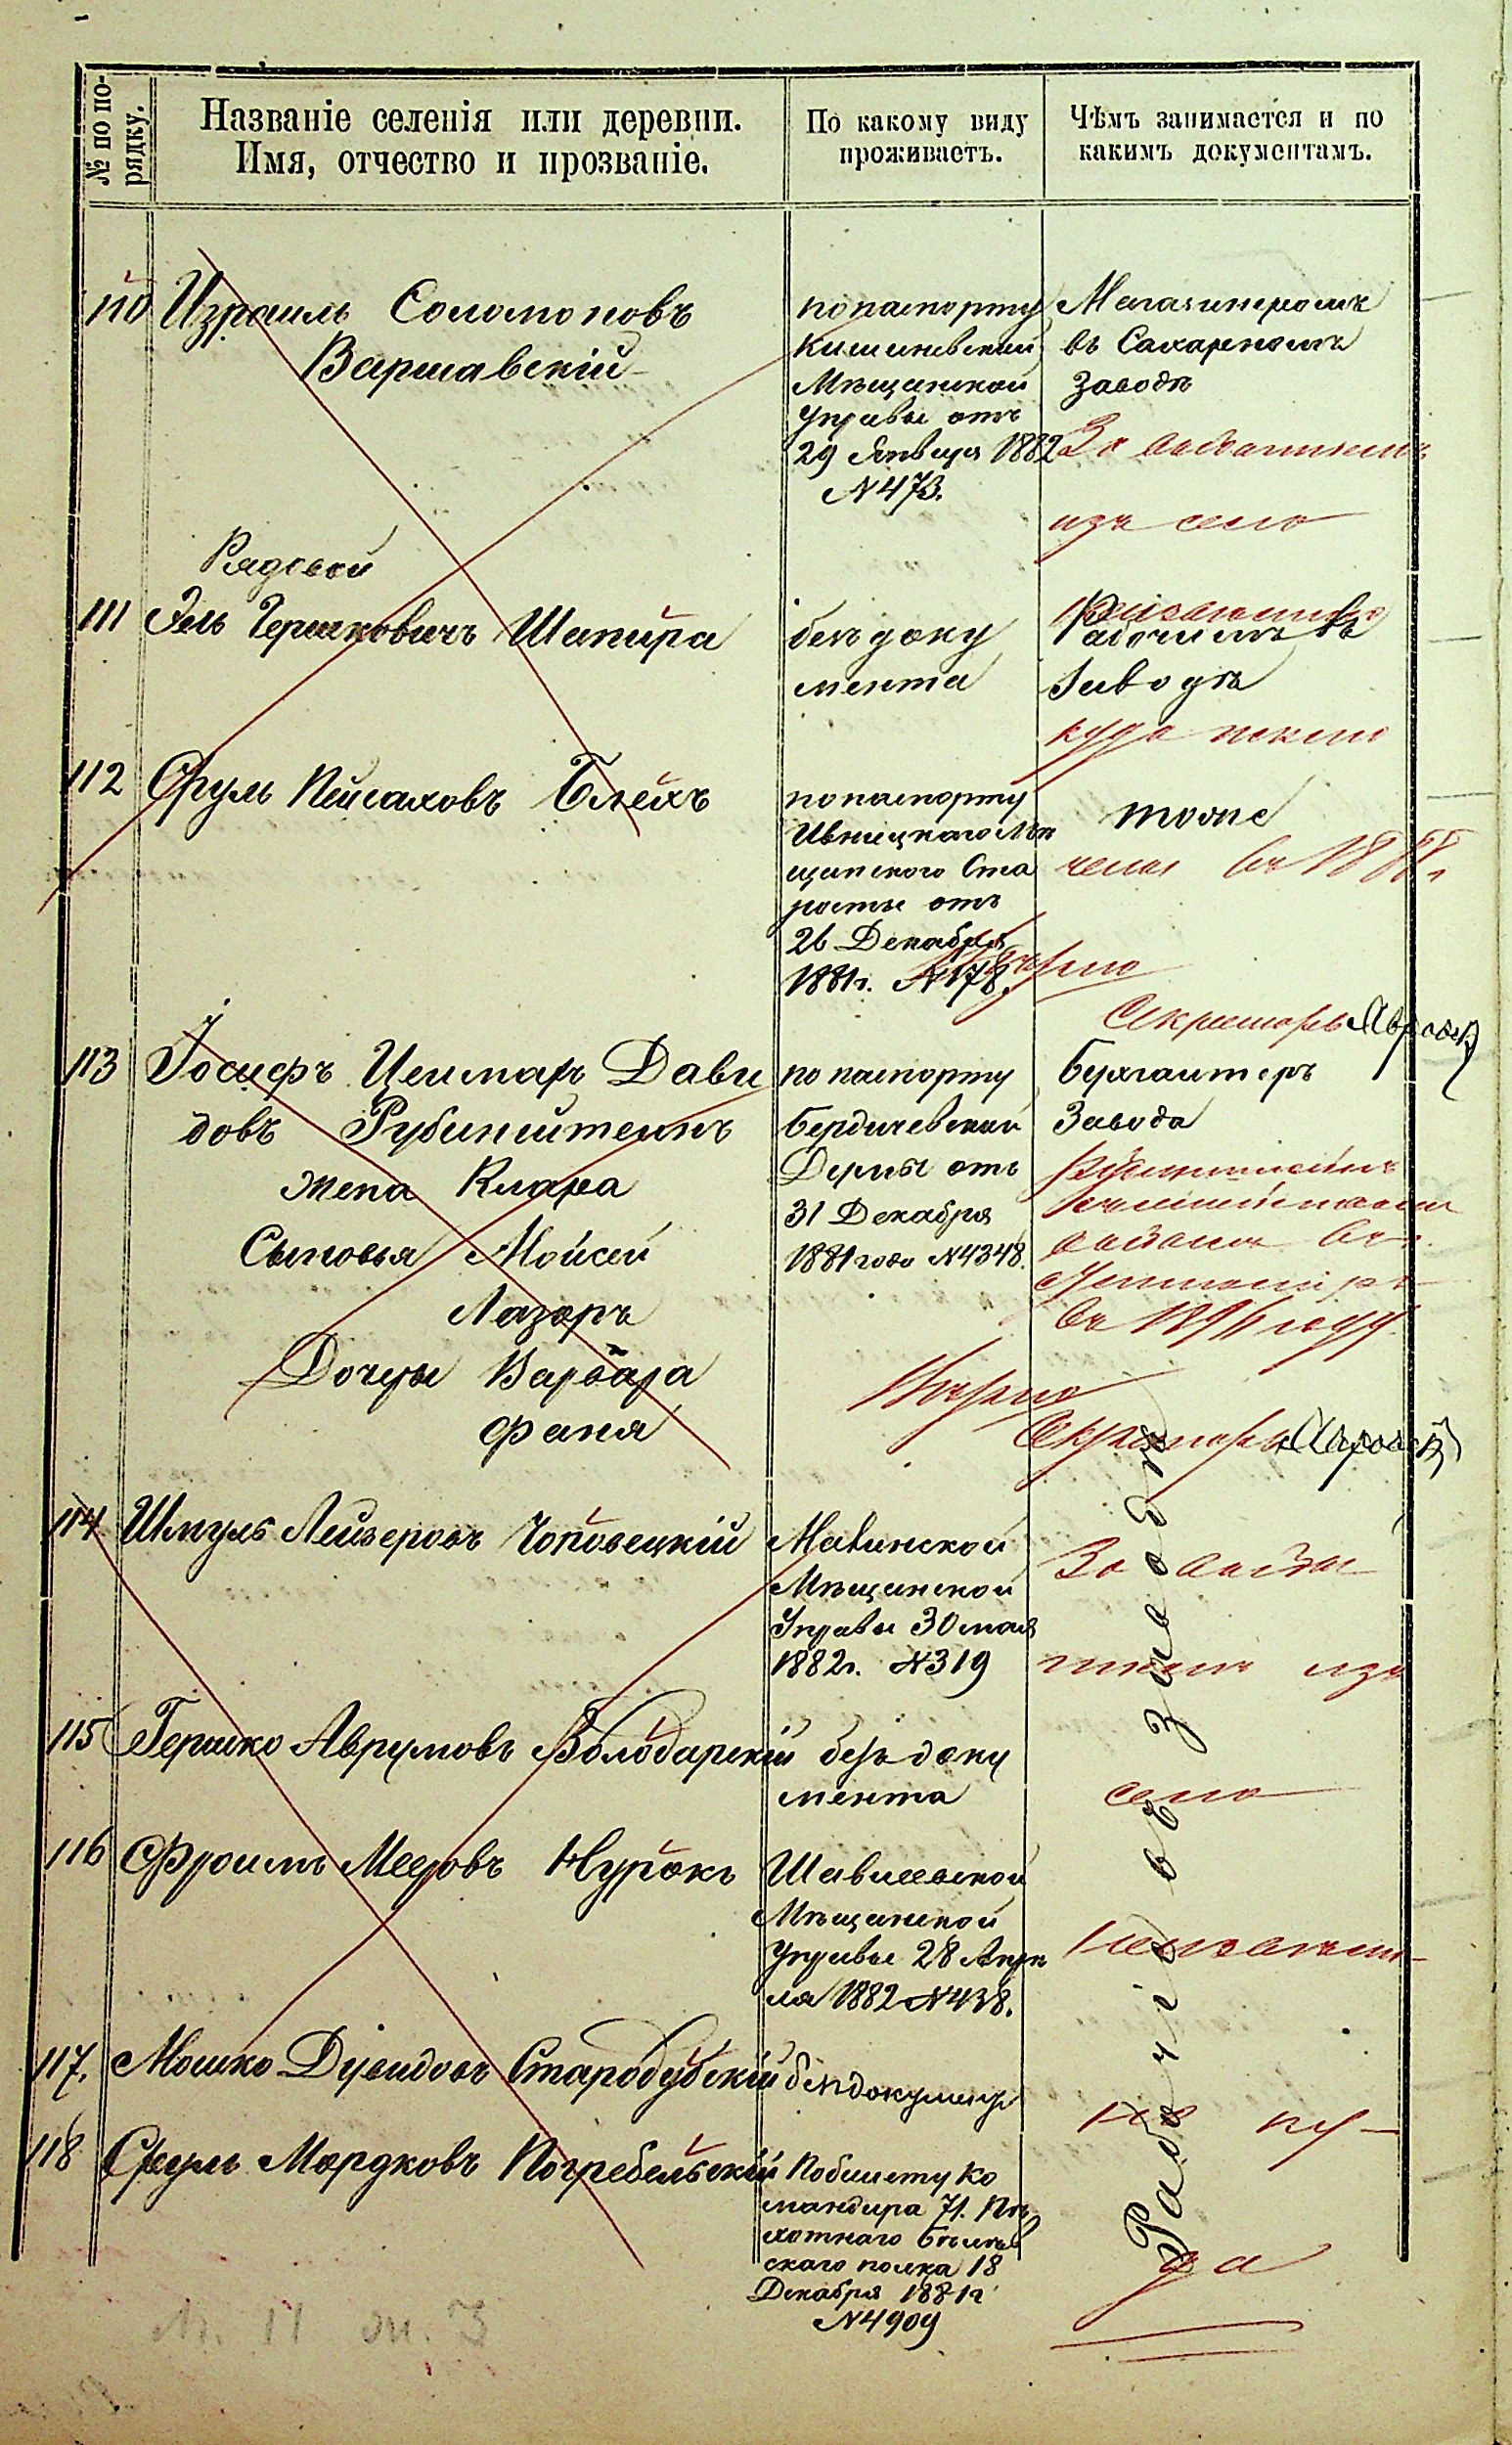 № по по-
рядку.
Названіе селенія или деревни.
Имя, отчество и прозваніе.
По какому виду
проживаетъ.
Чѣмъ занимается и по
какимъ документамъ.
110 Израиль Соломоновъ
Варшавскій
по паспорту
Кишиневской
Мѣщанской
Управы отъ
29 Января 1882
N 473.
Магазинеромъ
въ Сахарномъ
Заводѣ
За
изъ села
111 Рядовой
Эль Гершковичъ Шапира
безъ доку
мента
Рабочимъ въ
Заводѣ
куда
112 Сруль Пейсаховъ Блехъ
по паспорту
Ивницкаго Мѣ
щанского Ста
росты отъ
26 Декабря
1881г. N 178.
тоже
въ 1888 г
Вѣрно
Секретарь
113 Іосифъ Целмаръ Дави
довъ Рубинштейнъ
жена Клара
Сыновья Мойсей
Лазарь
Дочеры Варвара
Фаня
по паспорту
Бердичевской
Думы отъ
31 Декабря
1881 года N 4348.
Бухгалтеръ
Завода
Рубинштейнъ
въ
году
Вѣрно
Секретарь
114 Шмуль Лейзеровъ Чоповецкій
Мѣщанской
Управы 30 мая
1882г. N 319
За
изъ
115 Гершко Аврумовъ Володарскій
безъ доку
мента
села
116 Фроимъ Мееровъ Нурокъ
Мѣщанской
Управы 28 Апрѣ
ля 1882 N 438.
117. Мошко Дувидовъ Стародубскій
безъ докумен
118 Сруль Мордковъ Погребельскій
По билету Ко
мандира 71. Пѣ
хотнаго Бѣлев
скаго полка 18
Декабря 1881г
N 4909
Рабочіе въ заводѣ
ку-
да